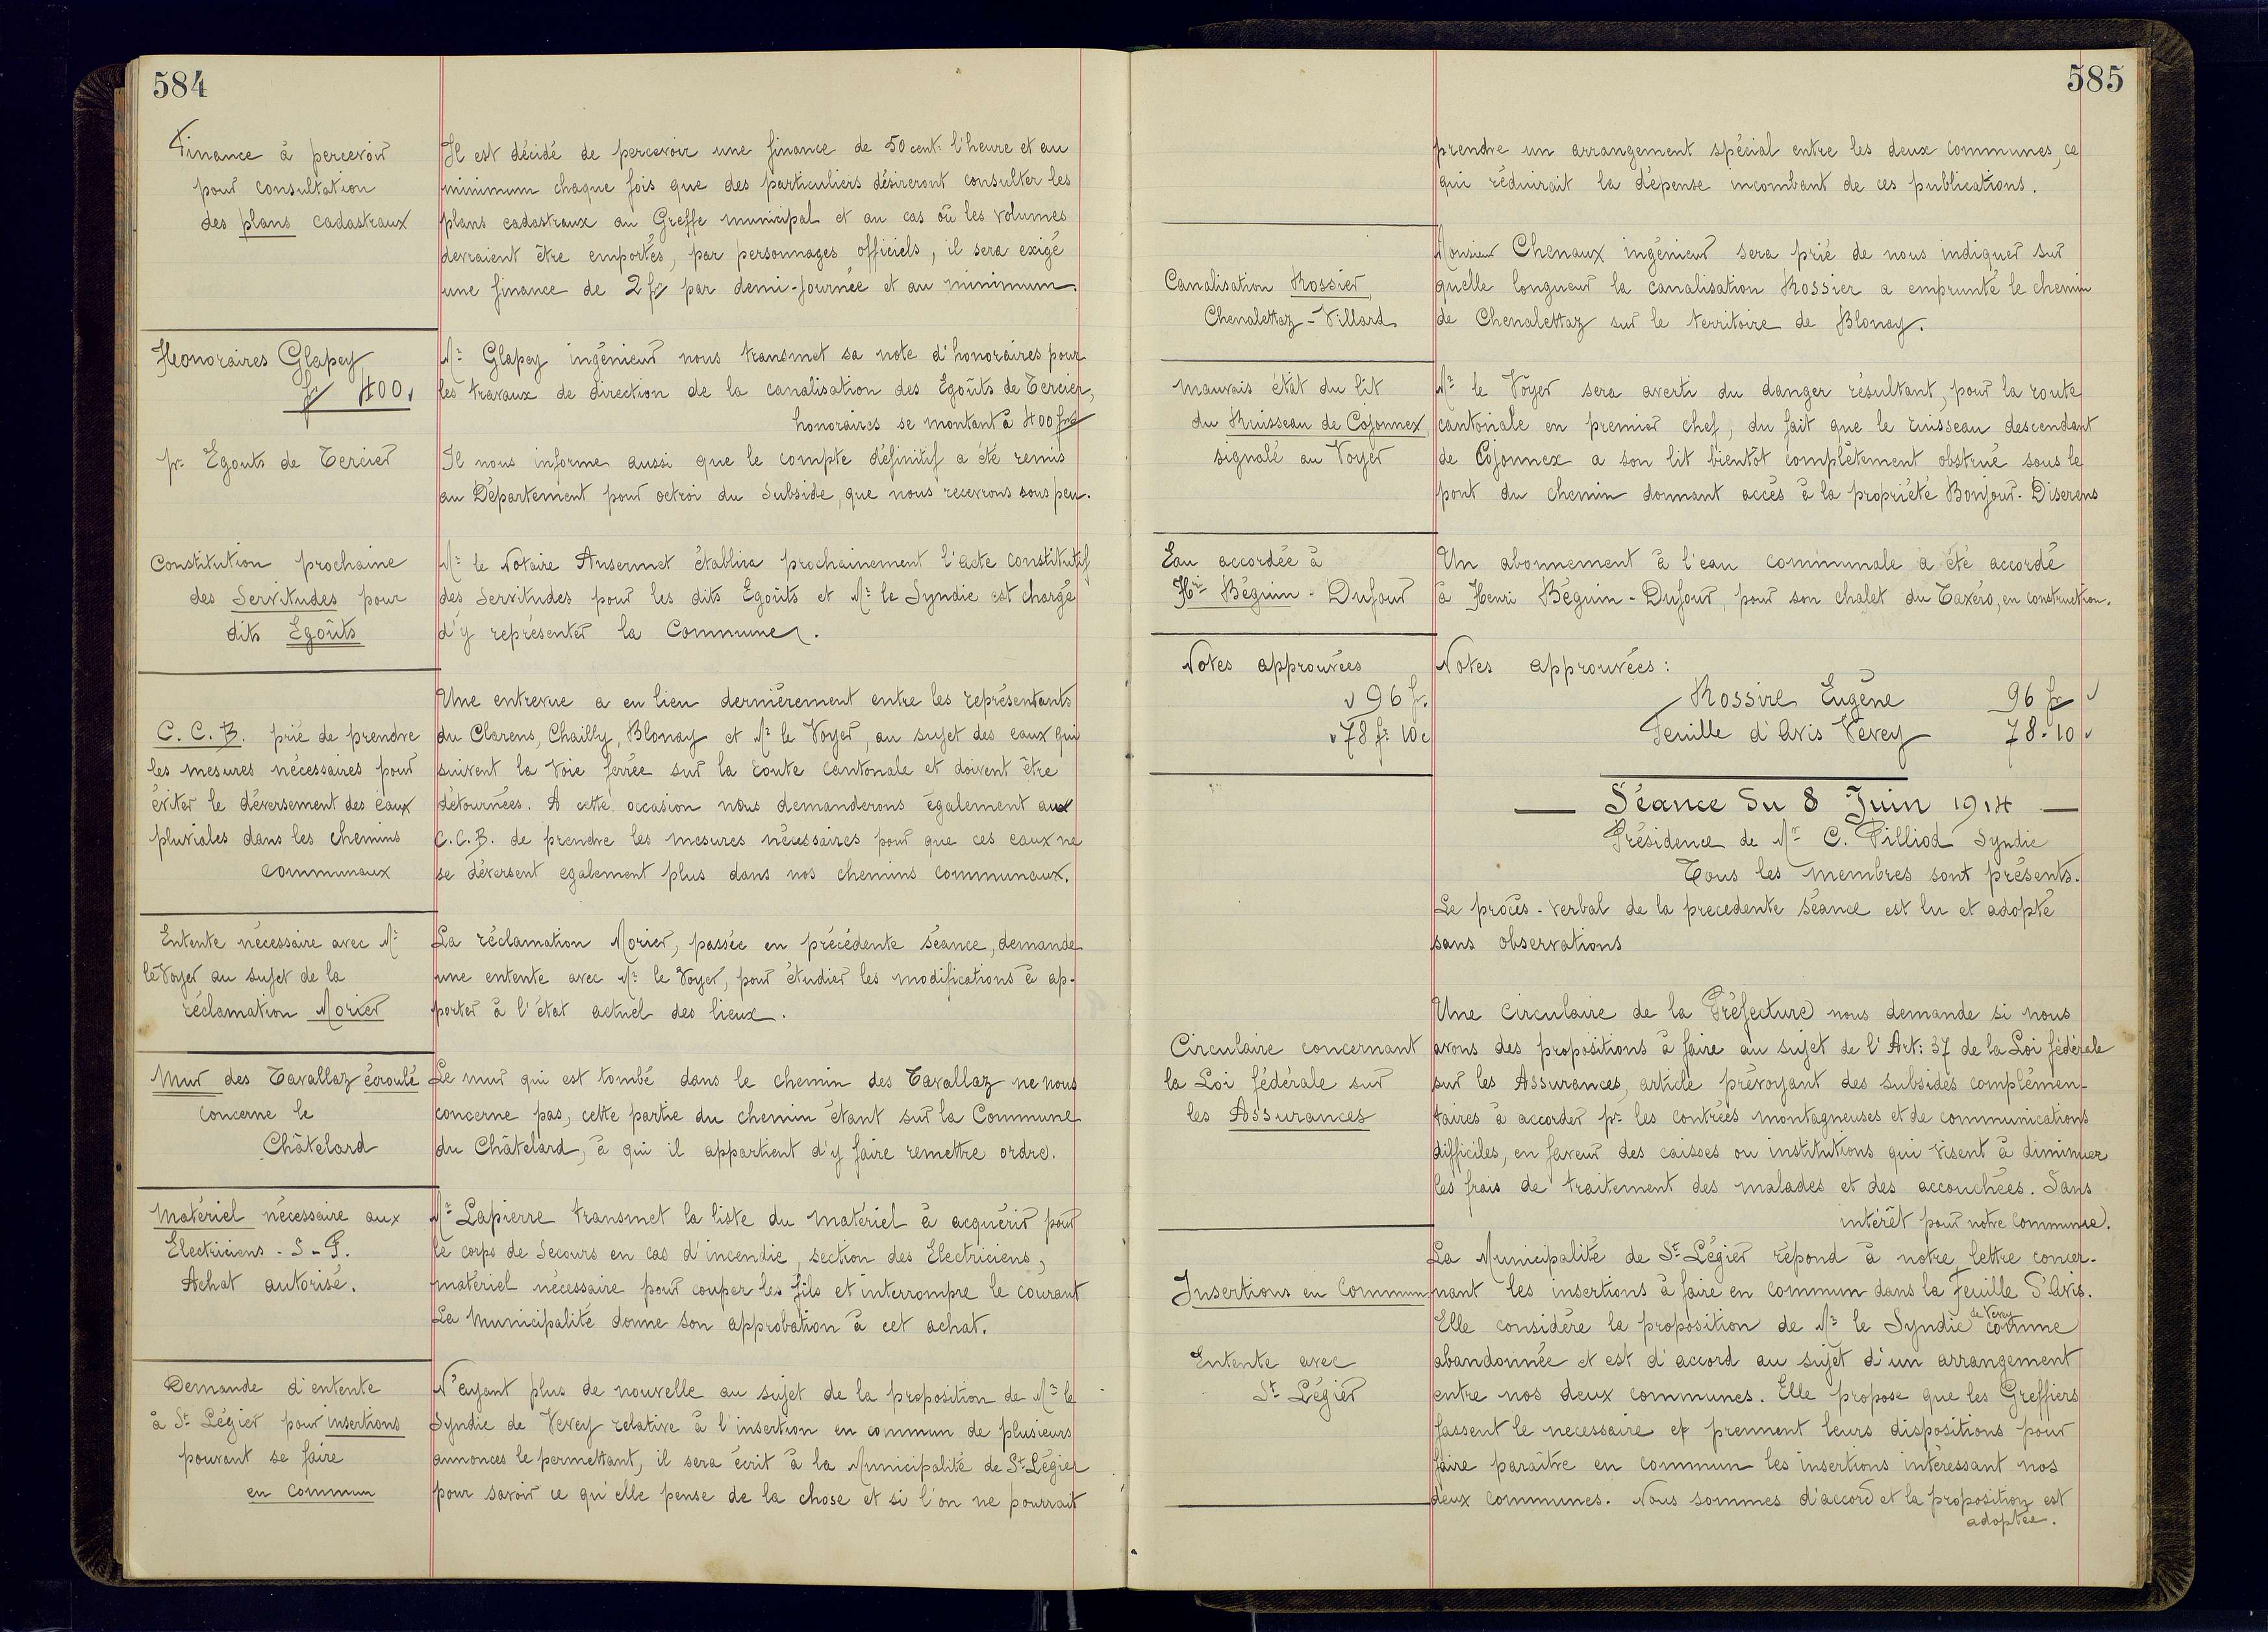 584
Finance à percevoir
pour consultation
des plans cadastraux
Il est décidé de percevoir une finance de 50 cent: l'heure et au
minimum chaque fois que des particuliers désireront consulter les
plans cadastraux au Greffe municipal et au cas où les volumes
devraient être emportés, par personnages officiels, il sera exigé
une finance de 2 fr par demi-journée et au minimum.
Honoraires Glapey
fr 400.
pr Egouts de Tercier
Mr Glapey ingénieur nous transmet sa note d'honoraires pour
les travaux de direction de la canalisation des Egoûts de Tercier,
honoraires se montant à 400 frs
Il nous informe aussi que le compte définitif a été remis
au Département pour octroi du Subside, que nous recevrons sous peu.
Constitution prochaine
des Servitudes pour
dits Egoûts
Mr le Notaire Ansermet établira prochainement l'acte constitutif
des Servitudes pour les dits Egoûts et Mr le Syndic est chargé
d'y représenter la Commune.
C. C. B. prié de prendre
les mesures nécessaires pour
éviter le déversement des eaux
pluviales dans les chemins
communaux
Une entrevue a eu lieu dernièrement entre les représentants
du Clarens, Chailly, Blonay et Mr le Voyer, au sujet des eaux qui
suivent la voie ferrée sur la route cantonale et doivent être
détournées. A cette occasion nous demanderons également aux
C.C.B. de prendre les mesures nécessaires pour que ces eaux ne
se déversent egalement plus dans nos chemins communaux.
Entente nécessaire avec Mr
le Voyer au sujet de la
réclamation Morier
La réclamation Morier, passée en précédente séance, demande
une entente avec Mr le Voyer, pour étudier les modifications à ap-
porter à l'état actuel des lieux.
Mur des Tavallaz écroulé
concerne le
Châtelard
Le mur qui est tombé dans le chemin des Tavallaz ne nous
concerne pas, cette partie du chemin étant sur la Commune
du Châtelard, à qui il appartient d'y faire remettre ordre.
Matériel nécessaire aux
Electriciens - S - F.
Achat autorisé.
Mr Lapierre transmet la liste du matériel à acquérir pour
le corps de Secours en cas d'incendie, section des Electriciens,
matériel nécessaire pour couper les fils et interrompre le courant
La Municipalité donne son approbation à cet achat.
Demande d'entente
à St Légier pour insertions
pouvant se faire
en commun
N'ayant plus de nouvelle au sujet de la proposition de Mr le
Syndic de Vevey relative à l'insertion en commun de plusieurs
annonces le permettant, il sera écrit à la Municipalité de St Légier
pour savoir ce qu'elle pense de la chose et si l'on ne pourrait
585
prendre un arrangement spécial entre les deux communes, ce
qui réduirait la dépense incombant de ces publications.
Canalisation Rossier,
Chenalettaz - Villard
Monsieur Chenaux ingénieur sera prié de nous indiquer sur
quelle longueur la canalisation Rossier a emprunté le chemin
de Chenalettaz sur le territoire de Blonay.
Mauvais état du lit
du Ruisseau de Cojonnex,
signalé au Voyer
Mr le Voyer sera averti du danger résultant, pour la route
cantonale en premier chef, du fait que le ruisseau descendant
de Cojonnex a son lit bientôt complètement obstrué sous le
pont du chemin donnant accès à la propriété Bonjour-Diserens
Eau accordée à
Hri Béguin - Dufour
Un abonnement à l'eau communale a été accordé
à Henri Béguin - Dufour, pour son chalet du Taxéro, en construction.
Notes approuvées
v 96 fr.
v 78 fr 10 c
Notes approuvées:
Rossire Eugène 96 fr v
Feuille d'Avis Vevey 78.10 v
Séance du 8 Juin 1914
Présidence de Mr C. Pilliod Syndic
Tous les membres sont présents.
Le procès-verbal de la precedente séance est lu et adopté
sans observations
Circulaire concernant
la Loi fédérale sur
les Assurances
Une circulaire de la Préfecture nous demande si nous
avons des propositions à faire au sujet de l'Art: 37 de la Loi fédérale
sur les Assurances, article prévoyant des subsides complémen-
taires à accorder pr les contrées montagneuses et de communications
difficiles, en faveur des caisses ou institutions qui visent à diminuer
les frais de traitement des malades et des accouchées. Sans
intérêt pour notre Commune.
Insertions en Commun
Entente avec
St Légier
La Municipalité de St Légier répond à notre lettre concer-
nant les insertions à faire en commun dans la Feuille d'Avis.
Elle considère la proposition de Mr le Syndic de Vevey comme
abandonnée et est d'accord au sujet d'un arrangement
entre nos deux communes. Elle propose que les Greffiers
fassent le necessaire et prennent leurs dispositions pour
faire paraître en commun les insertions intéressant nos
deux communes. Nous sommes d'accord et la proposition est
adoptée.